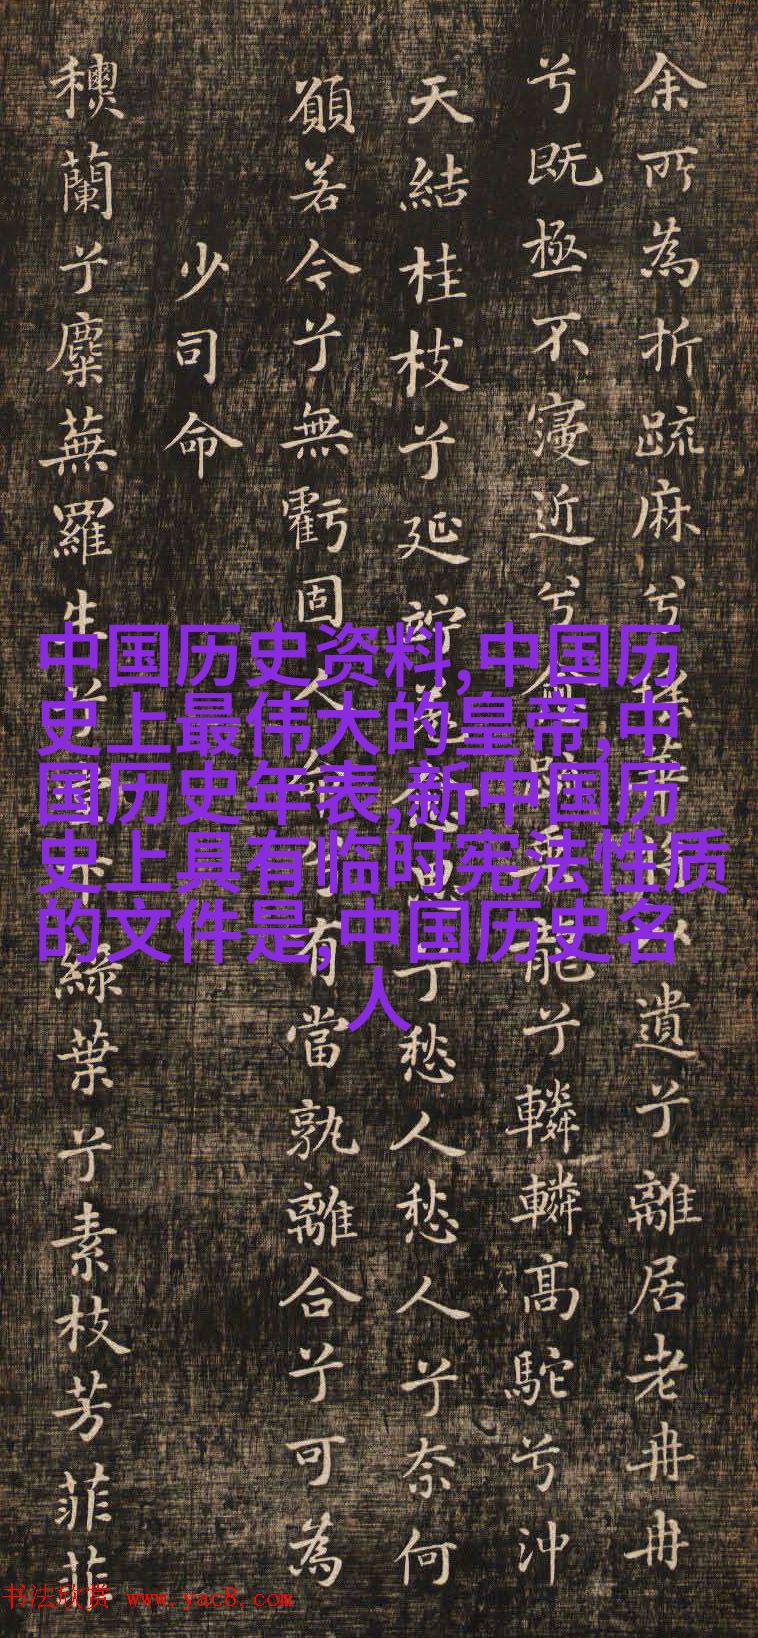 余所為折疏麻兮瑤華將以遺兮離居老冉冉
兮既極不寖近兮愈疏乘龍兮轔轔高駝兮沖
天結桂枝兮延竚羌愈思兮愁人愁人兮奈何
願若今兮無虧固人命兮有當孰離合兮可為
少司命
穖蘭兮麋蕪羅生兮堂下綠葉兮素枝芳菲菲
中国历史资料,中国历
史上最伟大的皇帝,中
国历史年表,新中国历
史上具有临时宪法性质
的文件是,中国历史名
人
书法欣赏 www.yac8.com